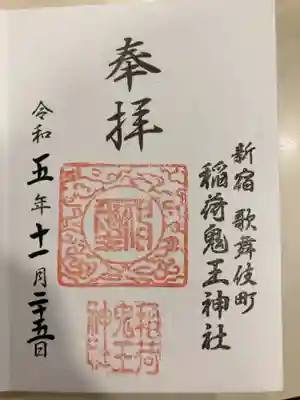 新宿 歌舞伎町
稲荷鬼王神社
奉拝
令和五年十一月二十五日
稲荷
鬼王
神社